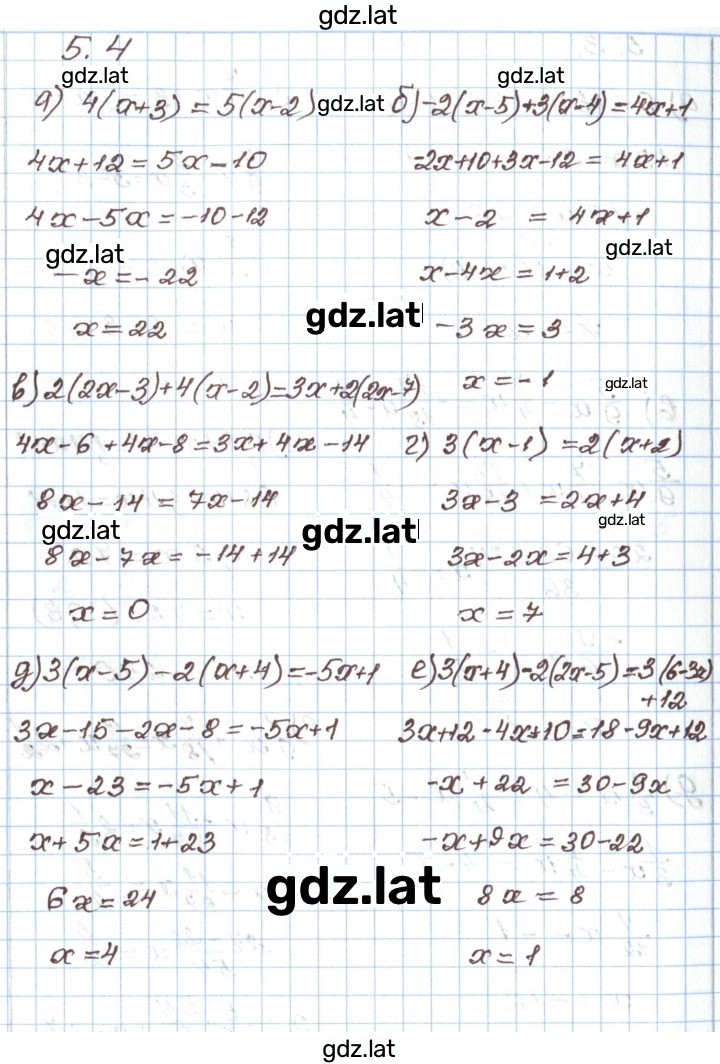 gdz.lat
5.4
gdz.lat
gdz.lat
а) 4(x+3) = 5(x-2)
gdz.lat
4x+12 = 5x-10
4x-5x = -10-12
gdz.lat
-x = -22
x = 22
б) -2(x-5)+3(x-4) = 4x+1
-2x+10+3x-12 = 4x+1
x-2 = 4x+1
gdz.lat
x-4x = 1+2
gdz.lat
-3x = 3
x = -1
gdz.lat
в) 2(2x-3)+4(x-2) = 3x+2(2x-7)
4x-6+4x-8 = 3x+4x-14
8x-14 = 7x-14
gdz.lat
gdz.lat
8x-7x = -14+14
x = 0
г) 3(x-1) = 2(x+2)
3x-3 = 2x+4
gdz.lat
3x-2x = 4+3
x = 7
д) 3(x-5)-2(x+4) = -5x+1
3x-15-2x-8 = -5x+1
x-23 = -5x+1
x+5x = 1+23
6x = 24
gdz.lat
x = 4
е) 3(x+4)-2(2x-5) = 3(6-3x)
+12
3x+12-4x+10 = 18-9x+12
-x+22 = 30-9x
-x+9x = 30-22
8x = 8
x = 1
gdz.lat